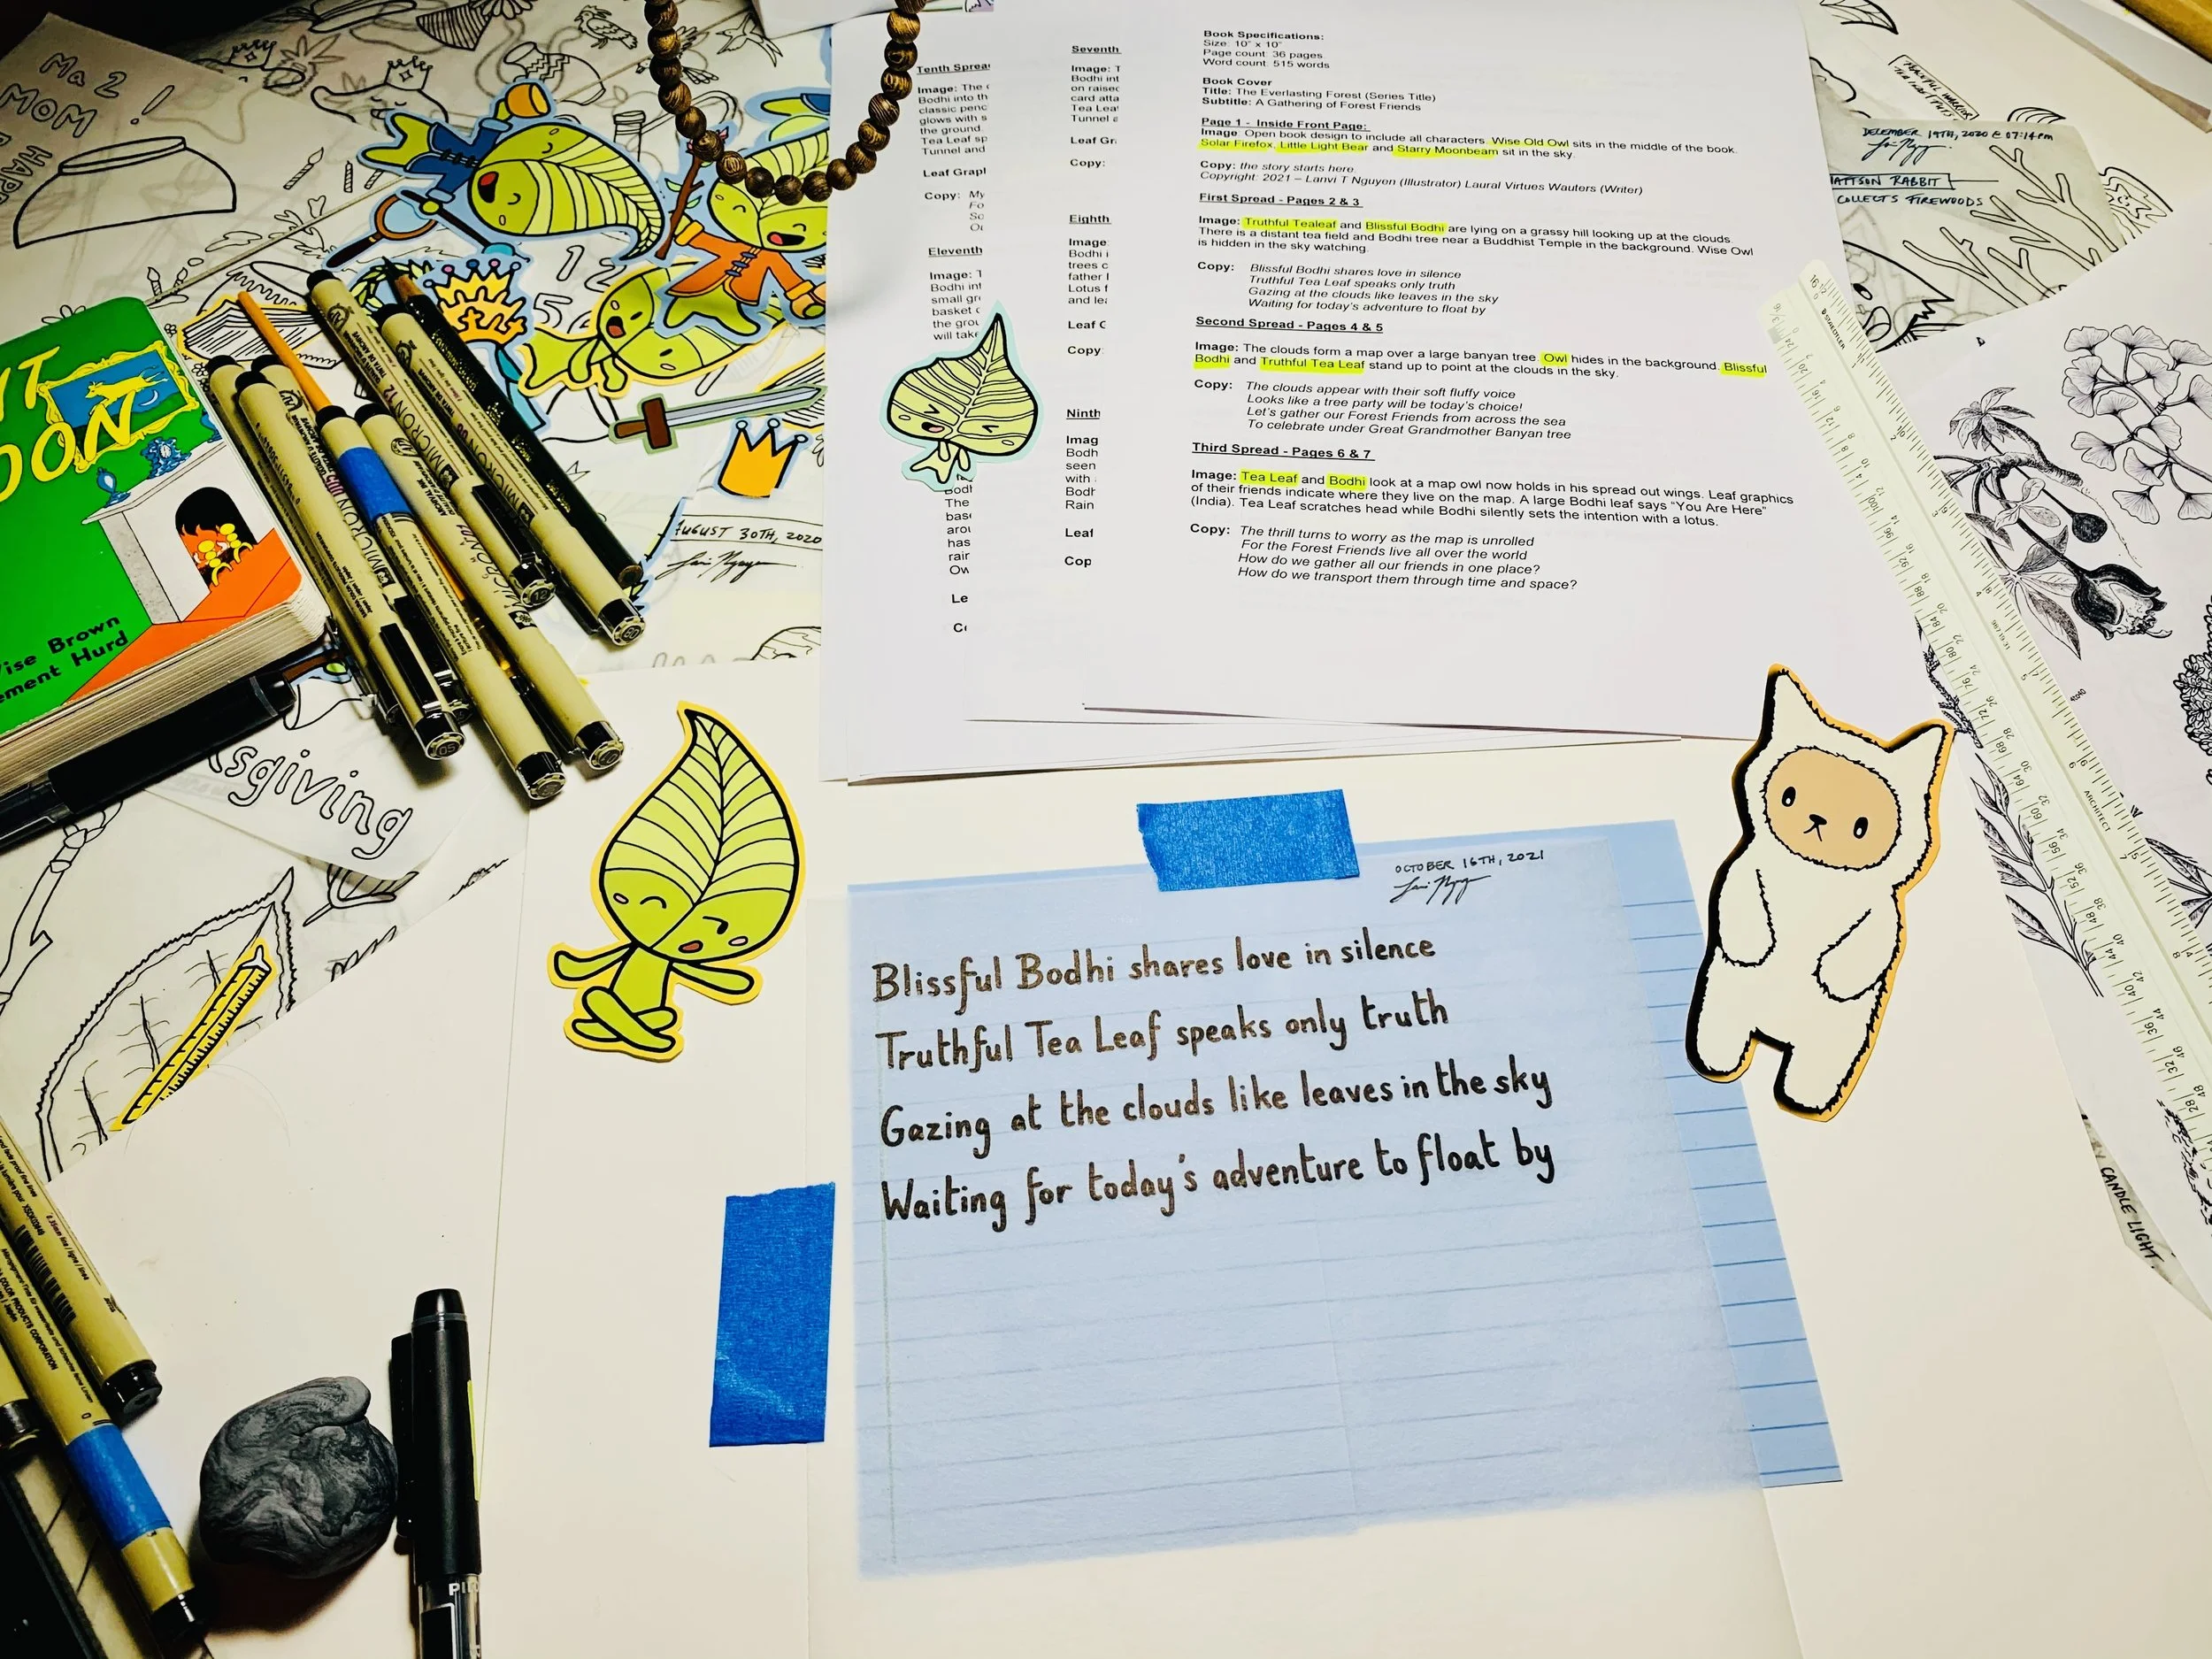 Ma 2!
MOM
HAPP
OON
ise Brown
ement Hurd
12
5
MICRON 12
MICRON 05
AUGUST 30TH, 2020
sgiving
Tenth Sprea
Image: The
Bodhi into th
classic penc
glows with s
the ground.
Tea Leaf sp
Tunnel and
Leaf Grapl
Copy: My
Fo
So
Eleventh
Image: T
Bodhi int
small gr
basket
the grou
will take
Bodl
The
bas
arou
has
rair
Ow
Le
Seventh
Image: T
Bodhi int
on raise
card atta
Tea Leaf
Tunnel a
Leaf Gr
Copy:
Eighth
Image:
Bodhi i
trees c
father l
Lotus f
and lea
Leaf
Copy
Ninth
Imag
Bodh
seen
with
Bodh
Rain
Leaf
Cop
Book Specifications:
Size: 10" x 10"
Page count: 36 pages
Word count: 515 words
Book Cover
Title: The Everlasting Forest (Series Title)
Subtitle: A Gathering of Forest Friends
Page 1 - Inside Front Page:
Image: Open book design to include all characters. Wise Old Owl sits in the middle of the book.
Solar Firefox, Little Light Bear and Starry Moonbeam sit in the sky.
Copy: the story starts here.
Copyright: 2021 – Lanvi T Nguyen (Illustrator) Laural Virtues Wauters (Writer)
First Spread - Pages 2 & 3
Image: Truthful Tealeaf and Blissful Bodhi are lying on a grassy hill looking up at the clouds.
There is a distant tea field and Bodhi tree near a Buddhist Temple in the background. Wise Owl
is hidden in the sky watching.
Copy: Blissful Bodhi shares love in silence
Truthful Tea Leaf speaks only truth
Gazing at the clouds like leaves in the sky
Waiting for today's adventure to float by
Second Spread - Pages 4 & 5
Image: The clouds form a map over a large banyan tree. Owl hides in the background. Blissful
Bodhi and Truthful Tea Leaf stand up to point at the clouds in the sky.
Copy: The clouds appear with their soft fluffy voice
Looks like a tree party will be today's choice!
Let's gather our Forest Friends from across the sea
To celebrate under Great Grandmother Banyan tree
Third Spread - Pages 6 & 7
Image: Tea Leaf and Bodhi look at a map owl now holds in his spread out wings. Leaf graphics
of their friends indicate where they live on the map. A large Bodhi leaf says "You Are Here"
(India). Tea Leaf scratches head while Bodhi silently sets the intention with a lotus.
Copy: The thrill turns to worry as the map is unrolled
For the Forest Friends live all over the world
How do we gather all our friends in one place?
How do we transport them through time and space?
DECEMBER 19TH, 2020 @ 07:14 pm
MATTSON RABBIT
COLLECTS FIREWOODS
STAEDTLER
ARCHITECT
CANDLE LIGHT
OCTOBER 16TH, 2021
Blissful Bodhi shares love in silence
Truthful Tea Leaf speaks only truth
Gazing at the clouds like leaves in the sky
Waiting for today's adventure to float by